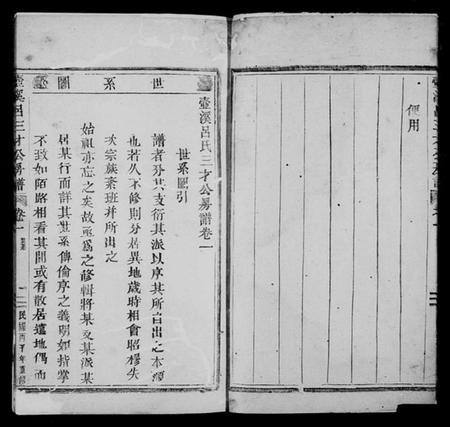 便用
壺溪呂三才公房譜
世系圖
壺溪呂氏三才公房譜卷一
世系圖引
譜者分其支衍其派以序其所自出之本源
也若久不修則分居異地歲時相會昭穆失
次宗族紊班并所出之
始祖亦忘之矣故亟為之修輯將某支某派某
居某行而詳其世系俾倫序之義明如指掌
不致如陌路相看其間或有散居遠地偶而
壺溪呂三才公房譜 卷一 一 民國丙子年重修